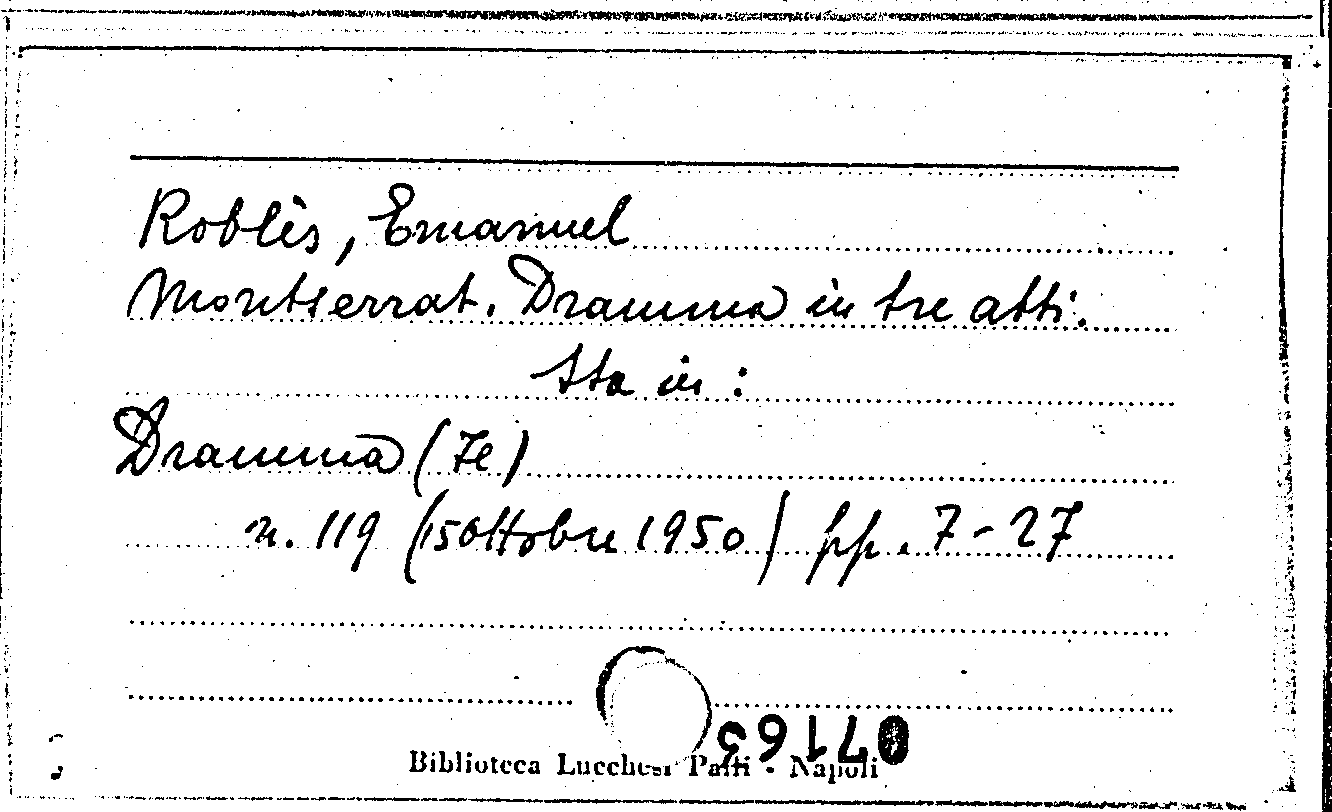 Roblès, Emanuel
Montserrat. Dramma in tre atti.
Sta in:
Dramma (Je)
n. 119 (15 Ottobre 1950) pp. 7-27
07163
Biblioteca Lucchesi Palli - Napoli